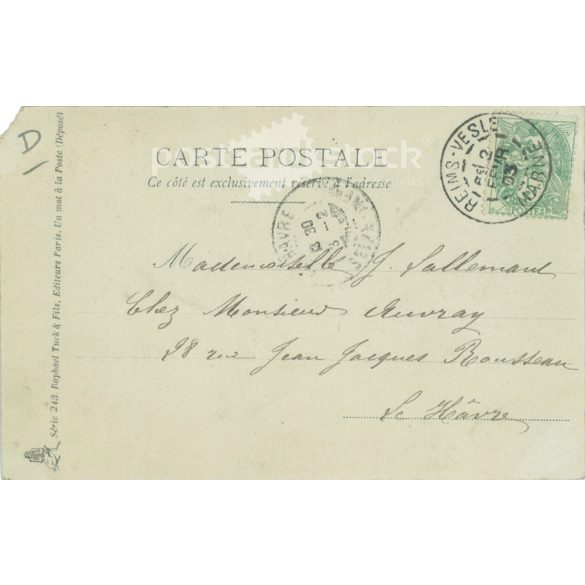 D
CARTE POSTALE
Ce côté est exclusivement réservé à l'adresse
REIMS-VESLE
2
FEVR
03
MARNE
POSTES
HAVRE
30
2
Mademoiselle J. Lallemant
Chez Monsieur Auvray
28 rue Jean Jacques Rousseau
Le Hâvre
Série 243. Raphael Tuck & Fils, Editeurs Paris. Un mot à la Poste (Déposé)